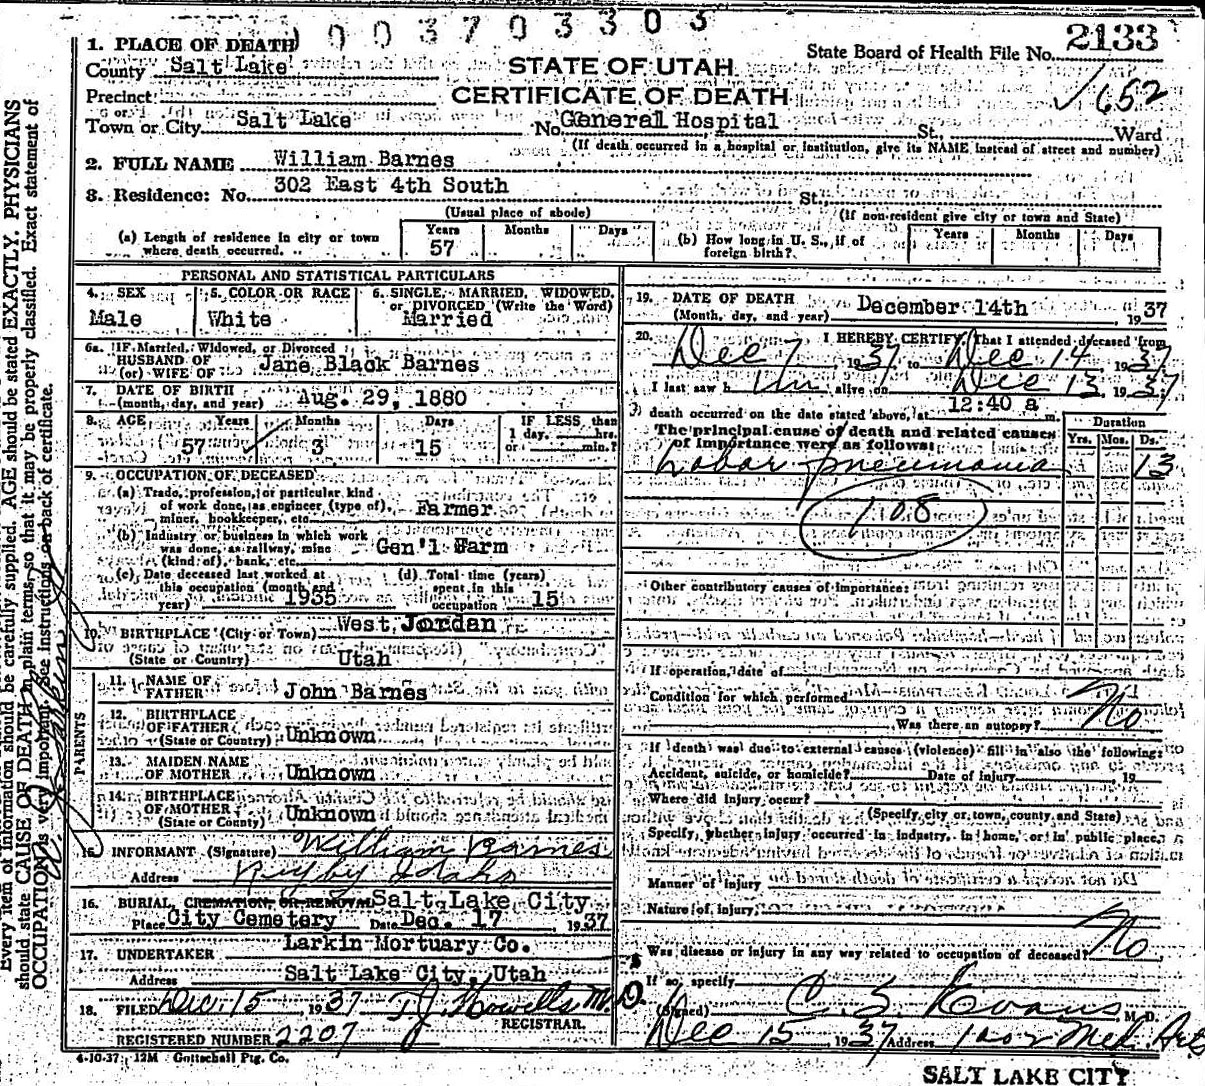 003703303
2133
State Board of Health File No.
652
1. PLACE OF DEATH
County Salt Lake
STATE OF UTAH
CERTIFICATE OF DEATH
Precinct
or
Town or City Salt Lake No. General Hospital St., Ward
(If death occurred in a hospital or institution, give its NAME instead of street and number)
2. FULL NAME William Barnes
3. Residence: No. 302 East 4th South St.,
(Usual place of abode)
(If non-resident give city or town and State)
(a) Length of residence in city or town where death occurred. Years 57 Months Days
(b) How long in U. S., if of foreign birth? Years Months Days
PERSONAL AND STATISTICAL PARTICULARS
4. SEX Male
5. COLOR OR RACE White
6. SINGLE, MARRIED, WIDOWED, or DIVORCED (Write the Word) Married
6a. If Married, Widowed, or Divorced
HUSBAND OF
(or) WIFE OF Jane Black Barnes
7. DATE OF BIRTH
(month, day, and year) Aug. 29, 1880
8. AGE Years 57 Months 3 Days 15 IF LESS than 1 day, hrs. or min.?
9. OCCUPATION OF DECEASED
(a) Trade, profession, or particular kind
of work done, as engineer (type of),
miner, bookkeeper, etc. Farmer
(b) Industry or business in which work
was done, as railway, mine
(kind of), bank, etc. Gen'l Farm
(c) Date deceased last worked at
this occupation (month and
year) 1935
(d) Total time (years)
spent in this
occupation 15
10. BIRTHPLACE (City or Town) West Jordan
(State or Country) Utah
PARENTS
11. NAME OF
FATHER John Barnes
12. BIRTHPLACE
OF FATHER
(State or Country) Unknown
13. MAIDEN NAME
OF MOTHER Unknown
14. BIRTHPLACE
OF MOTHER
(State or Country) Unknown
15. INFORMANT (Signature) William Barnes
Address Rigby Idaho
16. BURIAL, CREMATION, OR REMOVAL Salt Lake City
Place City Cemetery Date Dec. 17 1937
17. UNDERTAKER Larkin Mortuary Co.
Address Salt Lake City, Utah
18. FILED Dec. 15 1937 T. J. Howells M.D.
REGISTRAR.
REGISTERED NUMBER 2207
4-10-37: 12M Gottschall Ptg. Co.
19. DATE OF DEATH
(Month, day, and year) December 14th 1937
20. I HEREBY CERTIFY, That I attended deceased from
Dec 7 1937 to Dec 14, 1937
I last saw him alive on Dec 13, 1937
death occurred on the date stated above, at 12:40 a m.
The principal cause of death and related causes
of importance were as follows:
Duration
Yrs. Mos. Ds.
Lobar pneumonia 13
108
Other contributory causes of importance:
If operation, date of
Condition for which performed
Was there an autopsy? No
If death was due to external causes (violence) fill in also the following:
Accident, suicide, or homicide? Date of injury 19
Where did injury occur?
(Specify city or town, county and State)
Specify whether injury occurred in industry, in home, or in public place.
Manner of injury
Nature of injury
Was disease or injury in any way related to occupation of deceased? No
If so, specify
(Signed) C. S. Evans M. D.
Dec 15, 1937 Address 1202 Med. Arts
SALT LAKE CITY
Every item of information should be carefully supplied. AGE should be stated EXACTLY. PHYSICIANS
should state CAUSE OF DEATH in plain terms, so that it may be properly classified. Exact statement of
OCCUPATION is very important. See instructions on back of certificate.